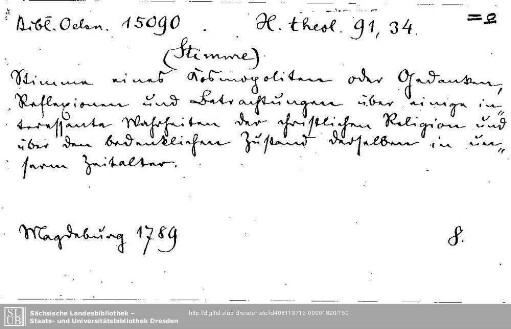 Bibl. Oelsn. 15090. H. theol. 91, 34. =2
(Stimme)
Stimme eines Kosmopoliten oder Gedanken,
Reflexionen und Betrachtungen über einige in=
teressante Wahrheiten der christlichen Religion und
über den bedenklichen Zustand derselben in un=
serm Zeitalter.
Magdeburg 1789 8.
Sächsische Landesbibliothek –
Staats- und Universitätsbibliothek Dresden